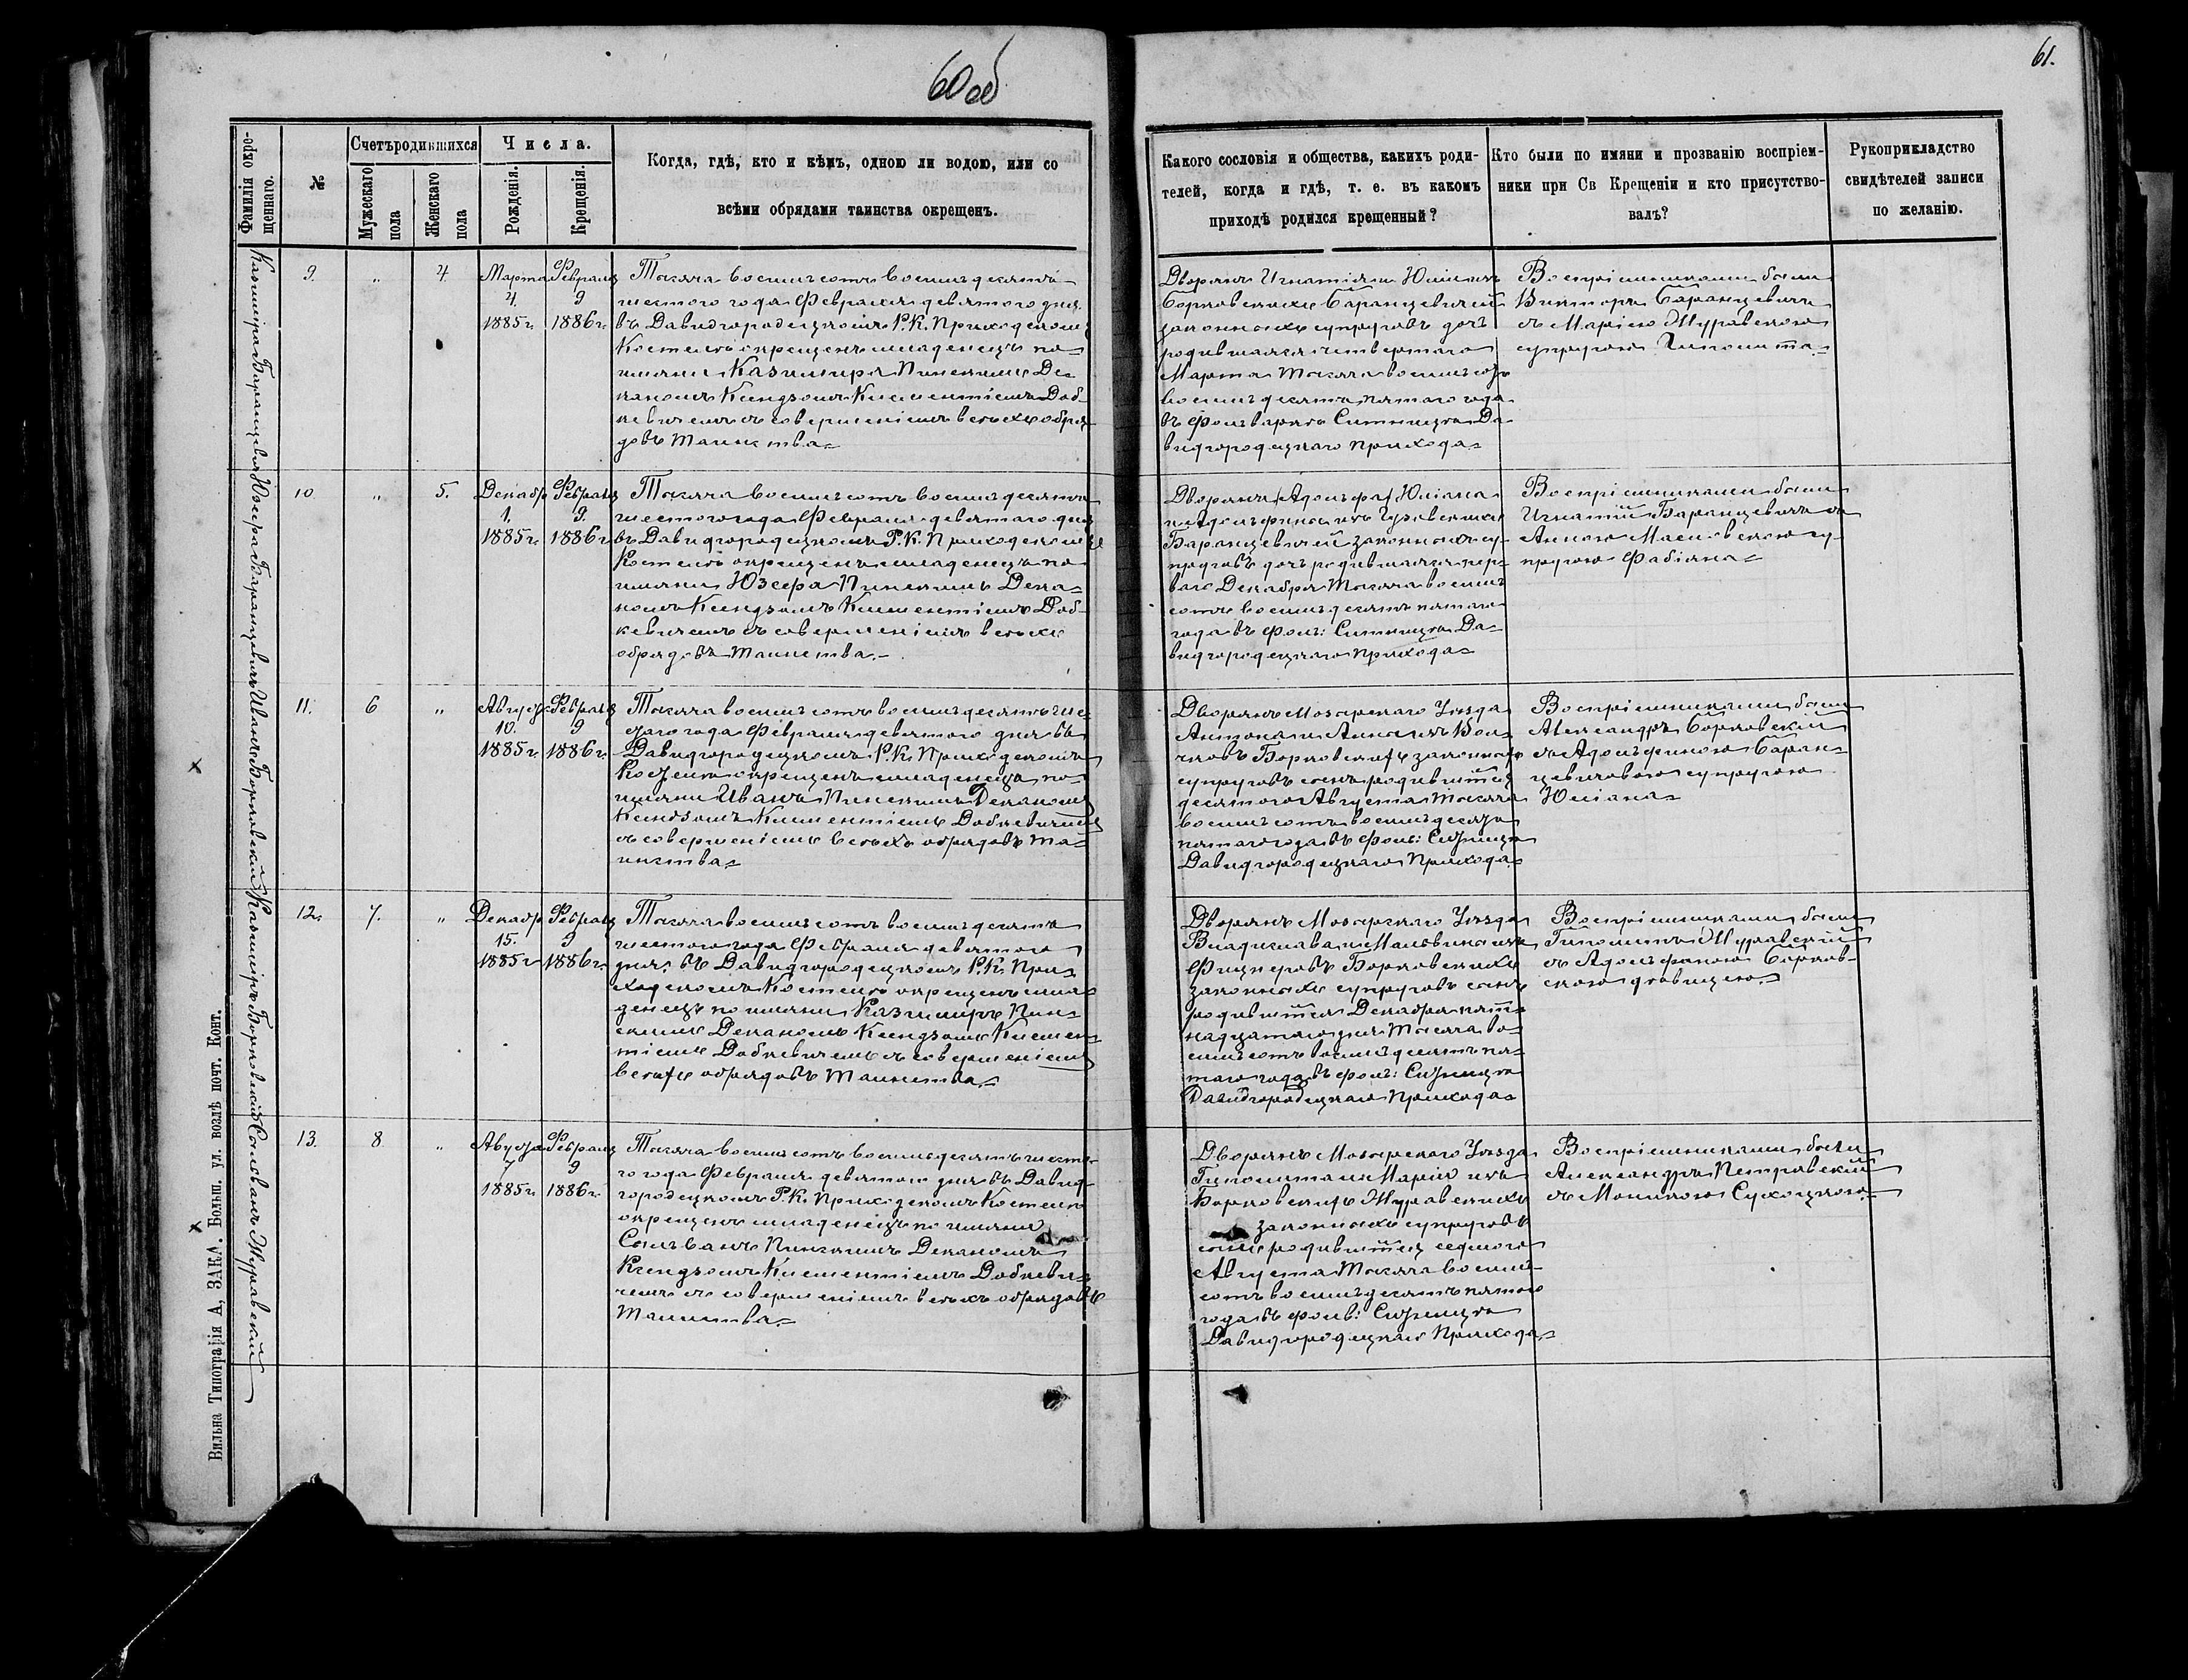 60 об
61.
Фамилія окре-
щеннаго.
№
Счетъ родившихся
Мужескаго
пола
Женскаго
пола
Числа.
Рожденія.
Крещенія.
Когда, гдѣ, кто и кѣмъ, одною ли водою, или со
всѣми обрядами таинства окрещенъ.
Какого сословія и общества, какихъ роди-
телей, когда и гдѣ, т. е. въ какомъ
приходѣ родился крещенный?
Кто были по имяни и прозванію воспріем-
ники при Св Крещеніи и кто присутство-
валъ?
Рукоприкладство
свидѣтелей записи
по желанію.
Казимира Баранцевичъ
9.
"
4
Марта
4.
1885 г.
Февраля
9
1886 г.
Тысяча восемьсотъ восемьдесятъ
шестого года Февраля девятого дня
въ Давидгородецкомъ Р. К. Приходскомъ
Костелѣ окрещенъ младенецъ по
имяни Казимира Пинскимъ Де-
каномъ Ксендзомъ Климентіемъ Доб-
кевичемъ съ совершеніемъ всѣхъ обря-
довъ Таинства
Дворянъ Игнатія и Юліи изъ
Борковскихъ Баранцевичей
законныхъ супруговъ дочь
родившаяся четвертого
Марта Тысяча восемьсотъ
восемьдесятъ пятого года
въ фольваркѣ Ситницкѣ Да-
видгородецкаго прихода
Воспріемниками были
Викторъ Баранцевичъ
съ Маріею Журавскою
супругою Ипполита
Юзефа Баранцевичъ
10
"
5.
Декабр
1.
1885 г.
Февраля
9.
1886 г.
Тысяча восемьсотъ восемьдесятъ
шестого года Февраля девятого дня
въ Давидгородецкомъ Р. К. Приходскомъ
Костелѣ окрещенъ младенецъ по
имяни Юзефа Пинскимъ Дека-
номъ Ксендзомъ Климентіемъ Доб-
кевичемъ съ совершеніемъ всѣхъ
обрядовъ Таинства.
Дворянъ Адольфа Юліана
и Адольфины изъ
Баранцевичей законныхъ су-
пруговъ дочь родившаяся пер-
ваго Декабря Тысяча восемь
сотъ восемьдесятъ пятого
года въ фоль: Ситницкѣ Да-
видгородецкаго Прихода
Воспріемниками были
Игнатій Баранцевичъ съ
Анною Масловскою су-
пругою Фабіяна
Иванъ Борковскій
11.
6
"
Август
10.
1885 г.
Февраля
9
1886 г.
Тысяча восемьсотъ восемьдесятъ ше-
стого года Февраля девятого дня въ
Давидгородецкомъ Р. К. Приходскомъ
Костелѣ окрещенъ младенецъ по
имяни Иванъ Пинскимъ Деканомъ
Ксендзомъ Климентіемъ Добкевичемъ
съ совершеніемъ всѣхъ обрядовъ Та-
инства
Дворянъ Мозырскаго Уѣзда
Антона и Анны изъ
Борковскихъ законныхъ
супруговъ сынъ родившійся
десятого Августа Тысяча
восемьсотъ восемьдесятъ
пятого года въ фоль: Ситницкѣ
Давидгородецкаго Прихода
Воспріемниками были
Александръ Борковскій
съ Адольфиною Баран-
цевичовою супругою
Юліана
Казиміръ Борковскій
12.
7.
"
Декабр
15.
1885 г.
Февраля
9
1886 г.
Тысяча восемьсотъ восемьдесятъ
шестого года Февраля девятого
дня въ Давидгородецкомъ Р. К. При-
ходскомъ Костелѣ окрещенъ мла-
денецъ по имяни Казимиръ Пин-
скимъ Деканомъ Ксендзомъ Климен-
тіемъ Добкевичемъ съ совершеніемъ
всѣхъ обрядовъ Таинства.
Дворянъ Мозырскаго Уѣзда
Владислава и Мальвины изъ
Борковскихъ
законныхъ супруговъ сынъ
родившійся Декабря пят-
надцатаго дня Тысяча во-
семьсотъ восемьдесятъ пя-
таго года въ фоль: Ситницкѣ
Давидгородецкаго Прихода
Воспріемниками были
Гиполитъ Журавскій
съ Адольфиною Борков-
скою дѣвицею.
Сильванъ Журавскій
13.
8
"
Августа
7
1885 г.
Февраля
9
1886 г.
Тысяча восемьсотъ восемьдесятъ шесто-
го года Февраля девятого дня въ Давид-
городецкомъ Р. К. Приходскомъ Костелѣ
окрещенъ младенецъ по имяни
Сильванъ Пинскимъ Деканомъ
Ксендзомъ Климентіемъ Добкеви-
чемъ съ совершеніемъ всѣхъ обрядовъ
Таинства.
Дворянъ Мозырскаго Уѣзда
Гиполита и Маріи изъ
Борковскихъ Журавскихъ
законныхъ супруговъ
сынъ родившійся седьмого
Августа Тысяча восемь
сотъ восемьдесятъ пятого
года въ фоль: Ситницкѣ
Давидгородецкаго Прихода
Воспріемниками были
Александръ Петровскій
съ Моникою Сухоцкою
Вильна Типографія А, ЗАКА. Больш. ул. возлѣ почт. Конт.